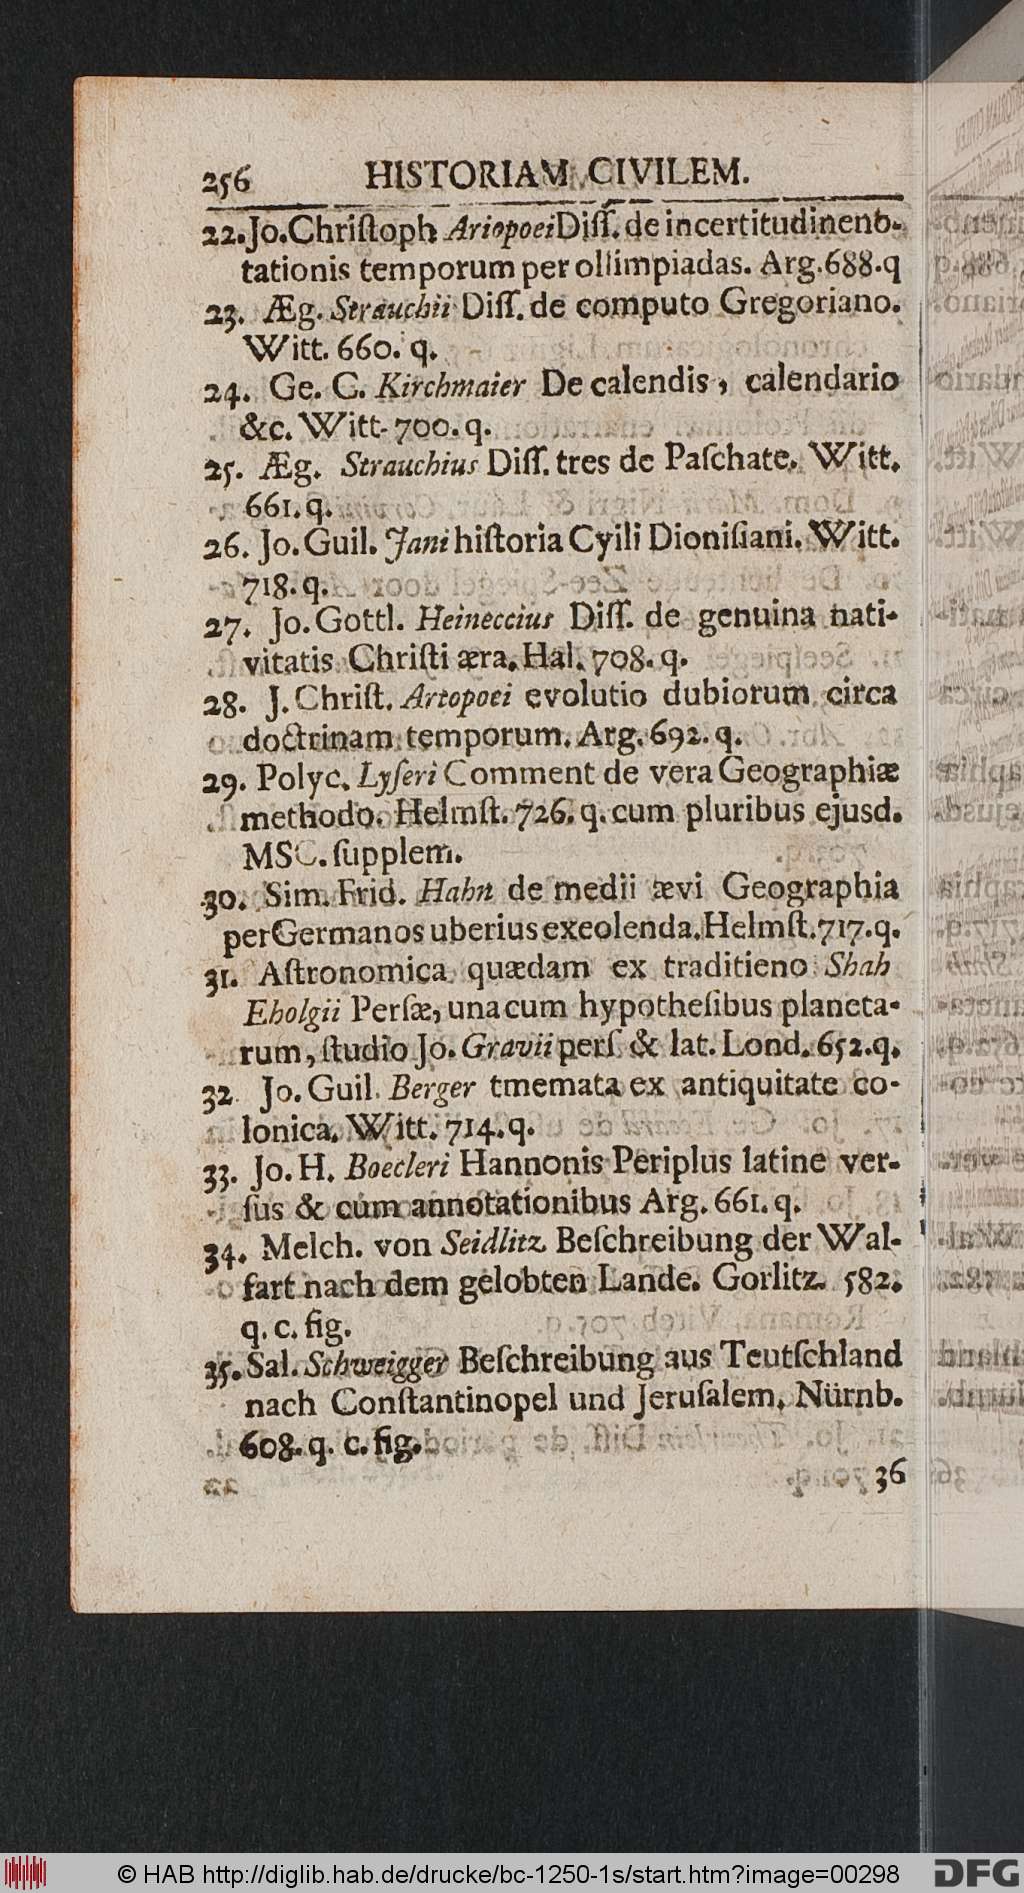 256 HISTORIAM CIVILEM.
22. Jo. Chriſtoph Ariopoei Diſſ. de incertitudine no-
tationis temporum per ollimpiadas. Arg. 688. q
23. Æg. Strauchii Diſſ. de computo Gregoriano.
Witt. 660. q.
24. Ge. C. Kirchmaier De calendis, calendario
&c. Witt- 700. q.
25. Æg. Strauchius Diſſ. tres de Paſchate. Witt.
661. q.
26. Jo. Guil. Jani hiſtoria Cyili Dioniſiani. Witt.
718. q.
27. Jo. Gottl. Heineccius Diſſ. de genuina nati-
vitatis Chriſti æra. Hal. 708. q.
28. J. Chriſt. Artopoei evolutio dubiorum circa
doctrinam temporum. Arg. 692. q.
29. Polyc. Lyſeri Comment de vera Geographiæ
methodo. Helmſt. 726. q. cum pluribus ejusd.
MSC. ſupplem.
30. Sim. Frid. Hahn de medii ævi Geographia
per Germanos uberius exeolenda. Helmſt. 717. q.
31. Aſtronomica quædam ex traditieno Shah
Eholgii Perſæ, una cum hypotheſibus planeta-
rum, ſtudio Jo. Gravii perſ & lat. Lond. 652. q.
32 Jo. Guil. Berger tmemata ex antiquitate co-
lonica. Witt. 714. q.
33. Jo. H. Boecleri Hannonis Periplus latine ver-
ſus & cum annotationibus Arg. 661. q.
34. Melch. von Seidlitz Beſchreibung der Wal-
fart nach dem gelobten Lande. Gorlitz. 582.
q. c. fig.
35. Sal. Schweigger Beſchreibung aus Teutſchland
nach Conſtantinopel und Jeruſalem, Nürnb.
608. q. c. fig.
36
© HAB http://diglib.hab.de/drucke/bc-1250-1s/start.htm?image=00298 DFG